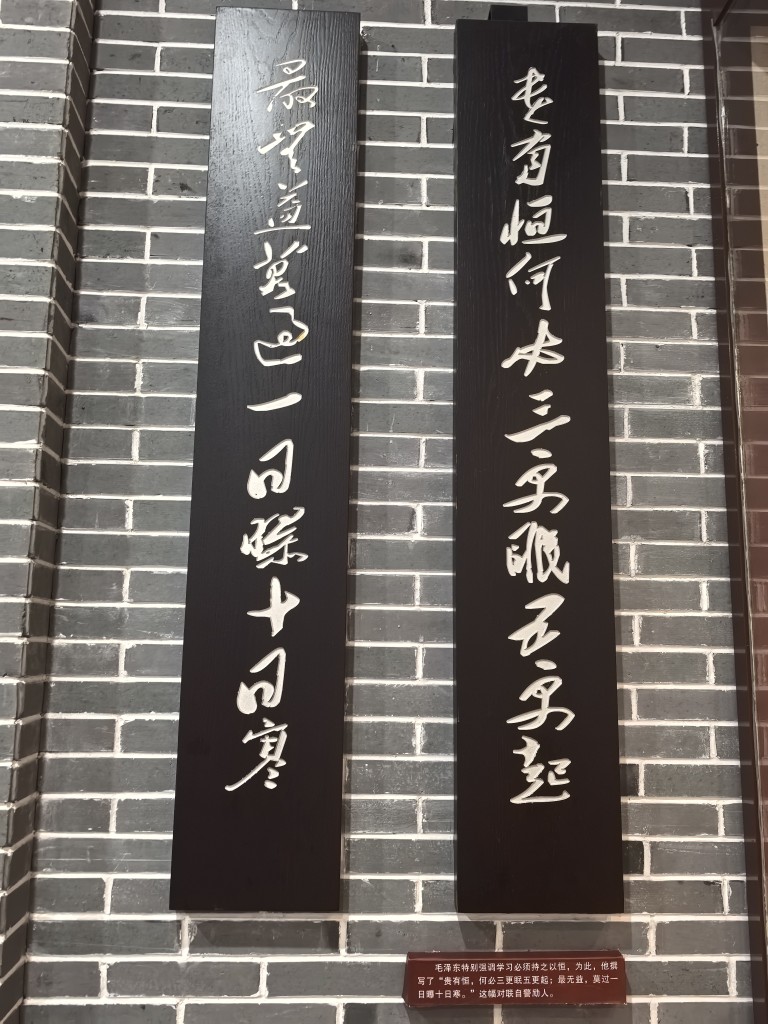 貴有恒何必三更眠五更起
最無益莫過一日曝十日寒
毛泽东特别强调学习必须持之以恒，为此，他撰
写了“贵有恒，何必三更眠五更起；最无益，莫过一
日曝十日寒。”这幅对联自警励人。